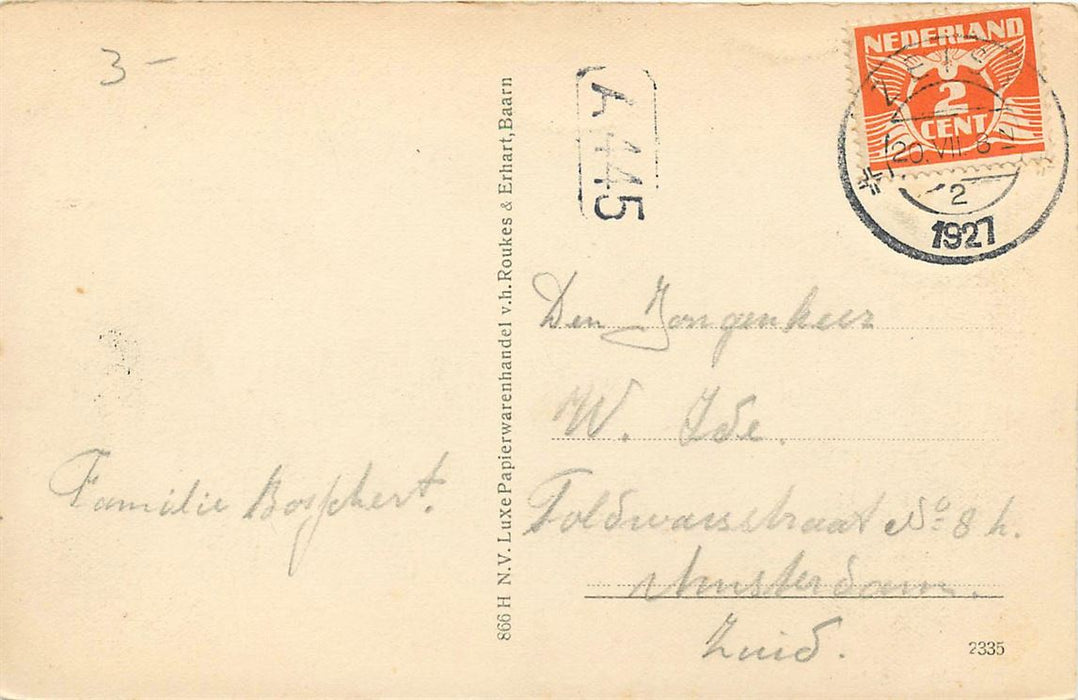 3 –
NEDERLAND
2
CENT
20.VII.8
2
1927
A 445
866 H N.V. Luxe Papierwarenhandel v.h. Roukes & Erhart, Baarn
Den Jongenheer
W. Ide.
Foldwarsstraat No. 8 h.
Amsterdam.
Zuid.
Familie Bosschert.
2335